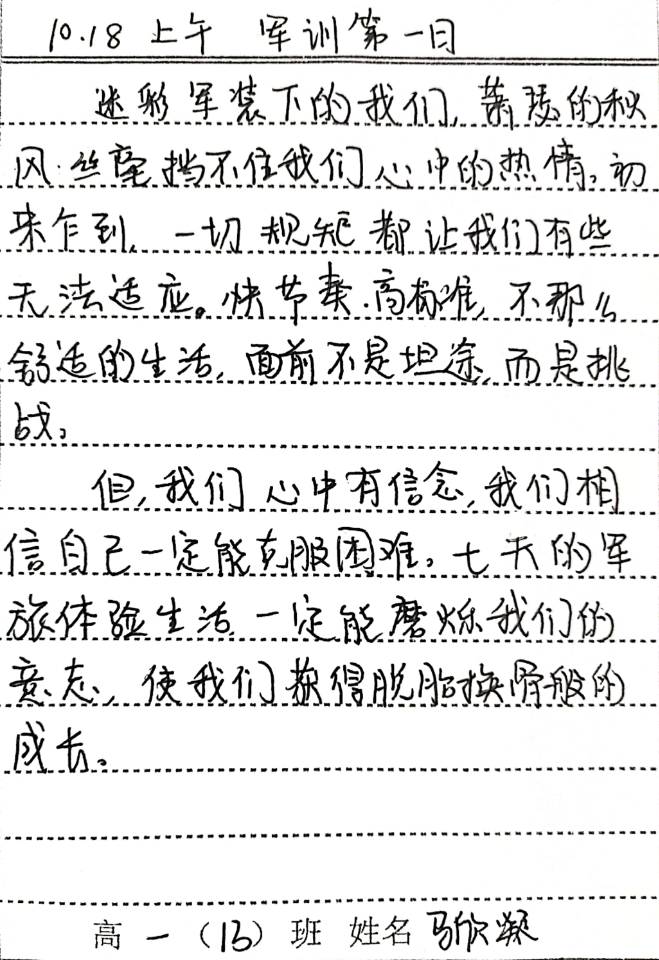 10.18 上午 军训第一日
迷彩军装下的我们,萧瑟的秋
风丝毫挡不住我们心中的热情。初
来乍到,一切规矩都让我们有些
无法适应。快节奏.高标准,不那么
舒适的生活,面前不是坦途,而是挑
战。
但,我们心中有信念,我们相
信自己一定能克服困难。七天的军
旅体验生活一定能磨烁我们的
意志,使我们获得脱胎换骨般的
成长。
高一(13)班 姓名 马欣凝